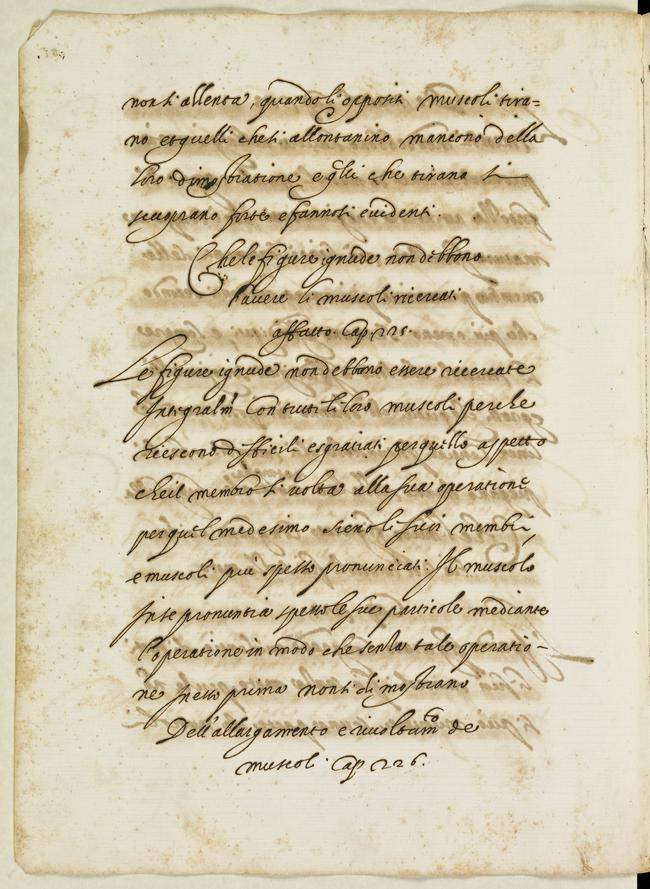 non si allenta, quando li oppositi muscoli tira=
no et quelli che si allontanino mancono della
loro dimostratione e q̃lli che tirano si
scuoprano forte e fannosi euidenti.
Che le figure ignude non debbono
hauere li muscoli ricercati
affatto. Cap. 225.
Le figure ignude non debbono essere ricercate
Integralm̃ Con tutti li loro muscoli perche
riescono difficili e sgratiati per quello aspetto
che il membro si volta alla sua operatione
per quel medesimo sieno li suoi membri,
e muscoli più spesso pronunciati. Il muscolo
In se pronuntia spesso le sue particole mediante
l'operatione in modo che senza tale operatio-
ne in esso prima non si dimostrano
Dell'allargamento e riuoltam.to de
muscoli Cap 226.